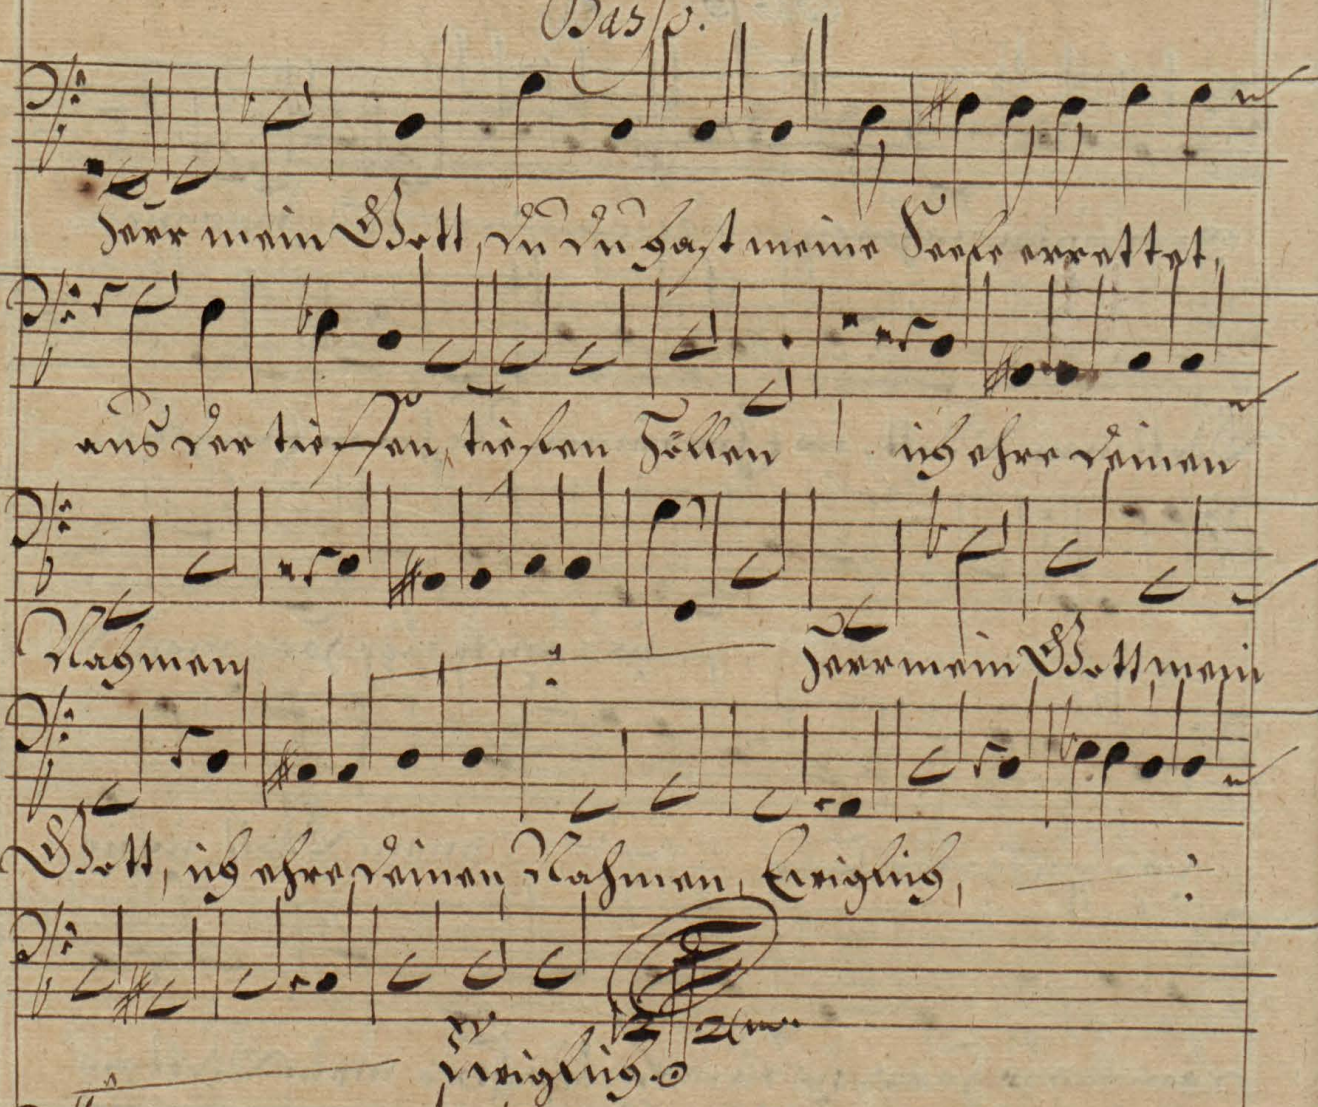 Basso.
Herr mein Gott, du du hast meine Seele errettet,
aus der tieffen, tieffen Höllen ich ehre deinen
Nahmen Herr mein Gott, mein
Gott, ich ehre deinen Nahmen, Ewiglich,
Ewiglich.